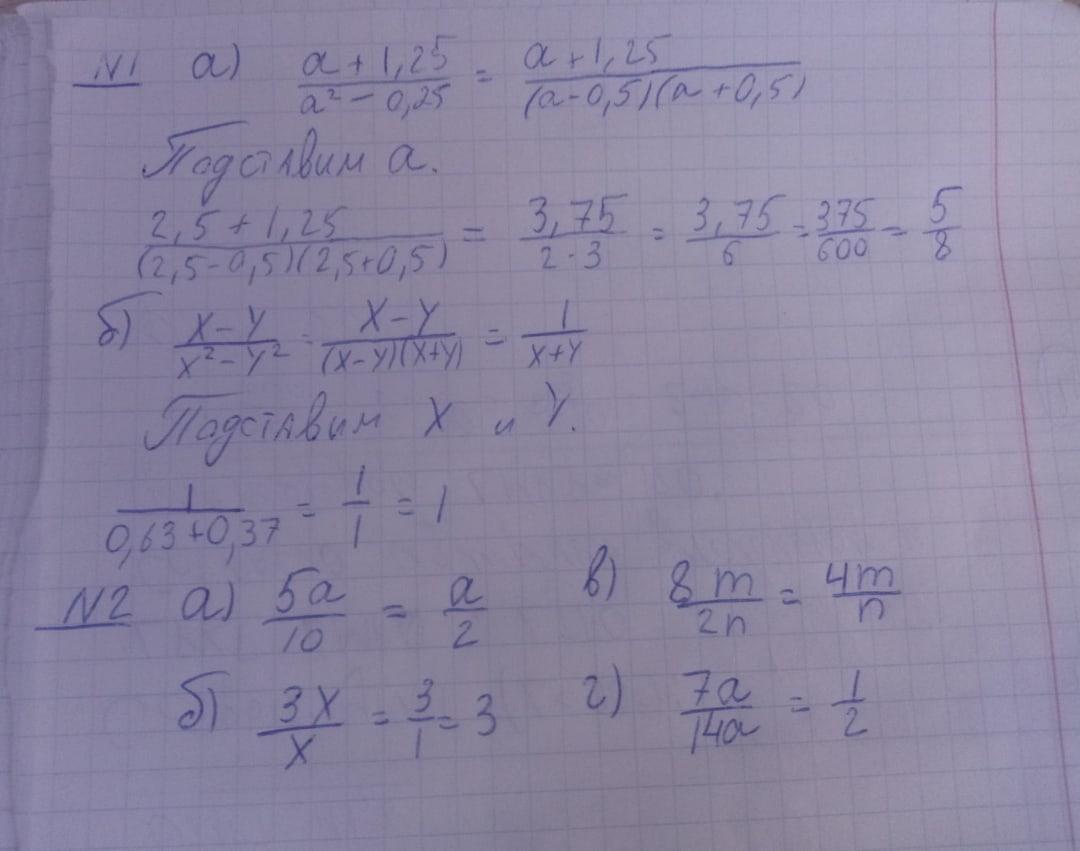 N1 а) (a + 1,25)/(a² - 0,25) = (a + 1,25)/((a-0,5)(a+0,5))
Подставим a.
(2,5 + 1,25)/((2,5-0,5)(2,5+0,5)) = 3,75/(2·3) = 3,75/6 = 375/600 = 5/8
б) (X-Y)/(X²-Y²) = (X-Y)/((X-Y)(X+Y)) = 1/(X+Y)
Подставим X и Y.
1/(0,63+0,37) = 1/1 = 1
N2 а) 5a/10 = a/2 в) 8m/2n = 4m/n
б) 3X/X = 3/1 = 3 г) 7a/14a = 1/2